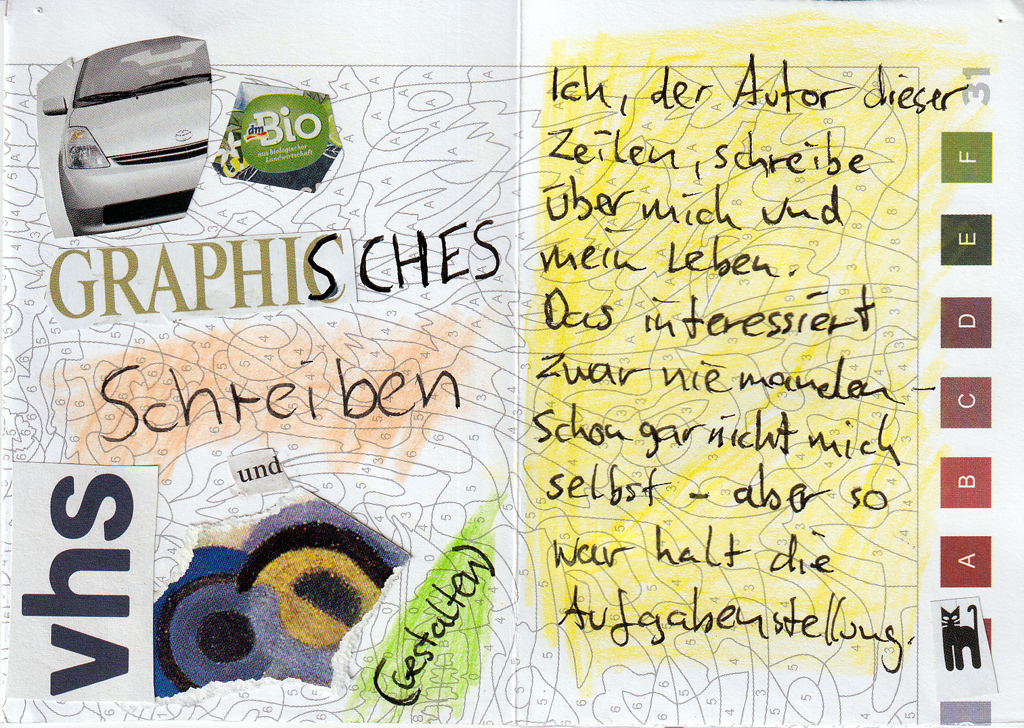 dm Bio
aus biologischer
Landwirtschaft
GRAPHISCHES
Schreiben
und
vhs
(Gestalten)
Ich, der Autor dieser
Zeilen, schreibe
über mich und
mein Leben.
Das interessiert
zwar niemanden –
schon gar nicht mich
selbst – aber so
war halt die
Aufgabenstellung.
31
F
E
D
C
B
A